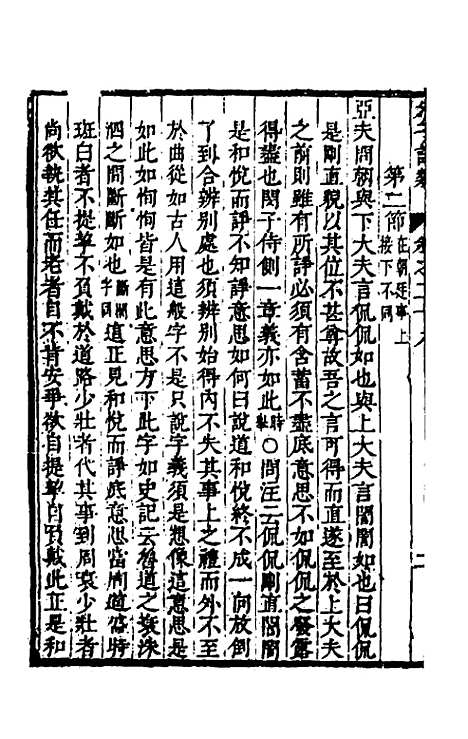 第二節 在朝廷事上接下不同
亞夫問朝與下大夫言侃侃如也與上大夫言誾誾如也曰侃侃
是剛直貌以其位不甚尊故吾之言可得而直遂至於上大夫
之前則雖有所諍必須有含蓄不盡底意思不如侃侃之發露
得盡也閔子侍側一章義亦如此時舉〇問注云侃侃剛直誾誾
是和悅而諍不知諍意思如何曰說道和悅終不成一向放倒
了到合辨別處也須辨別始得內不失其事上之禮而外不至
於曲從如古人用這般字不是只說字義須是想像這意思是
如此如恂恂皆是有此意思方下此字如史記云魯道之衰洙
泗之間斷斷如也斷誾字同這正見和悅而諍底意思當周道盛時
班白者不提挈不負戴於道路少壯者代其事到周衰少壯者
尚欲執其任而老者自不肯安爭欲自提挈自負戴此正是和